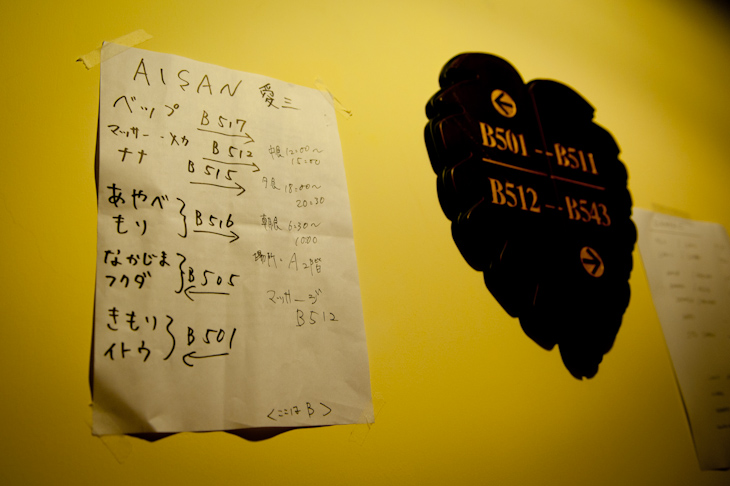 AISAN 愛三
ベップ B517 →
マッサー・メカ B512 →
ナナ B515 →
あやべ
もり } B516 →
なかじま
フクダ } B505 ←
きもり
イトウ } B501 ←
昼食 12:00〜
15:00
夕食 18:00〜
20:30
朝食 6:30〜
1000
場所・A2階
マッサージ
B512
<ここは B>
←
B501--B511
B512--B543
→